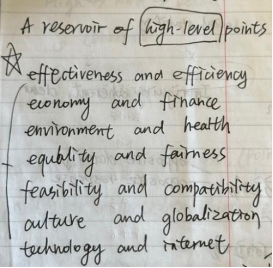 A reservoir of high-level points
effectiveness and efficiency
economy and finance
environment and health
equblity and fairness
feasibility and compatibility
culture and globalization
technology and internet